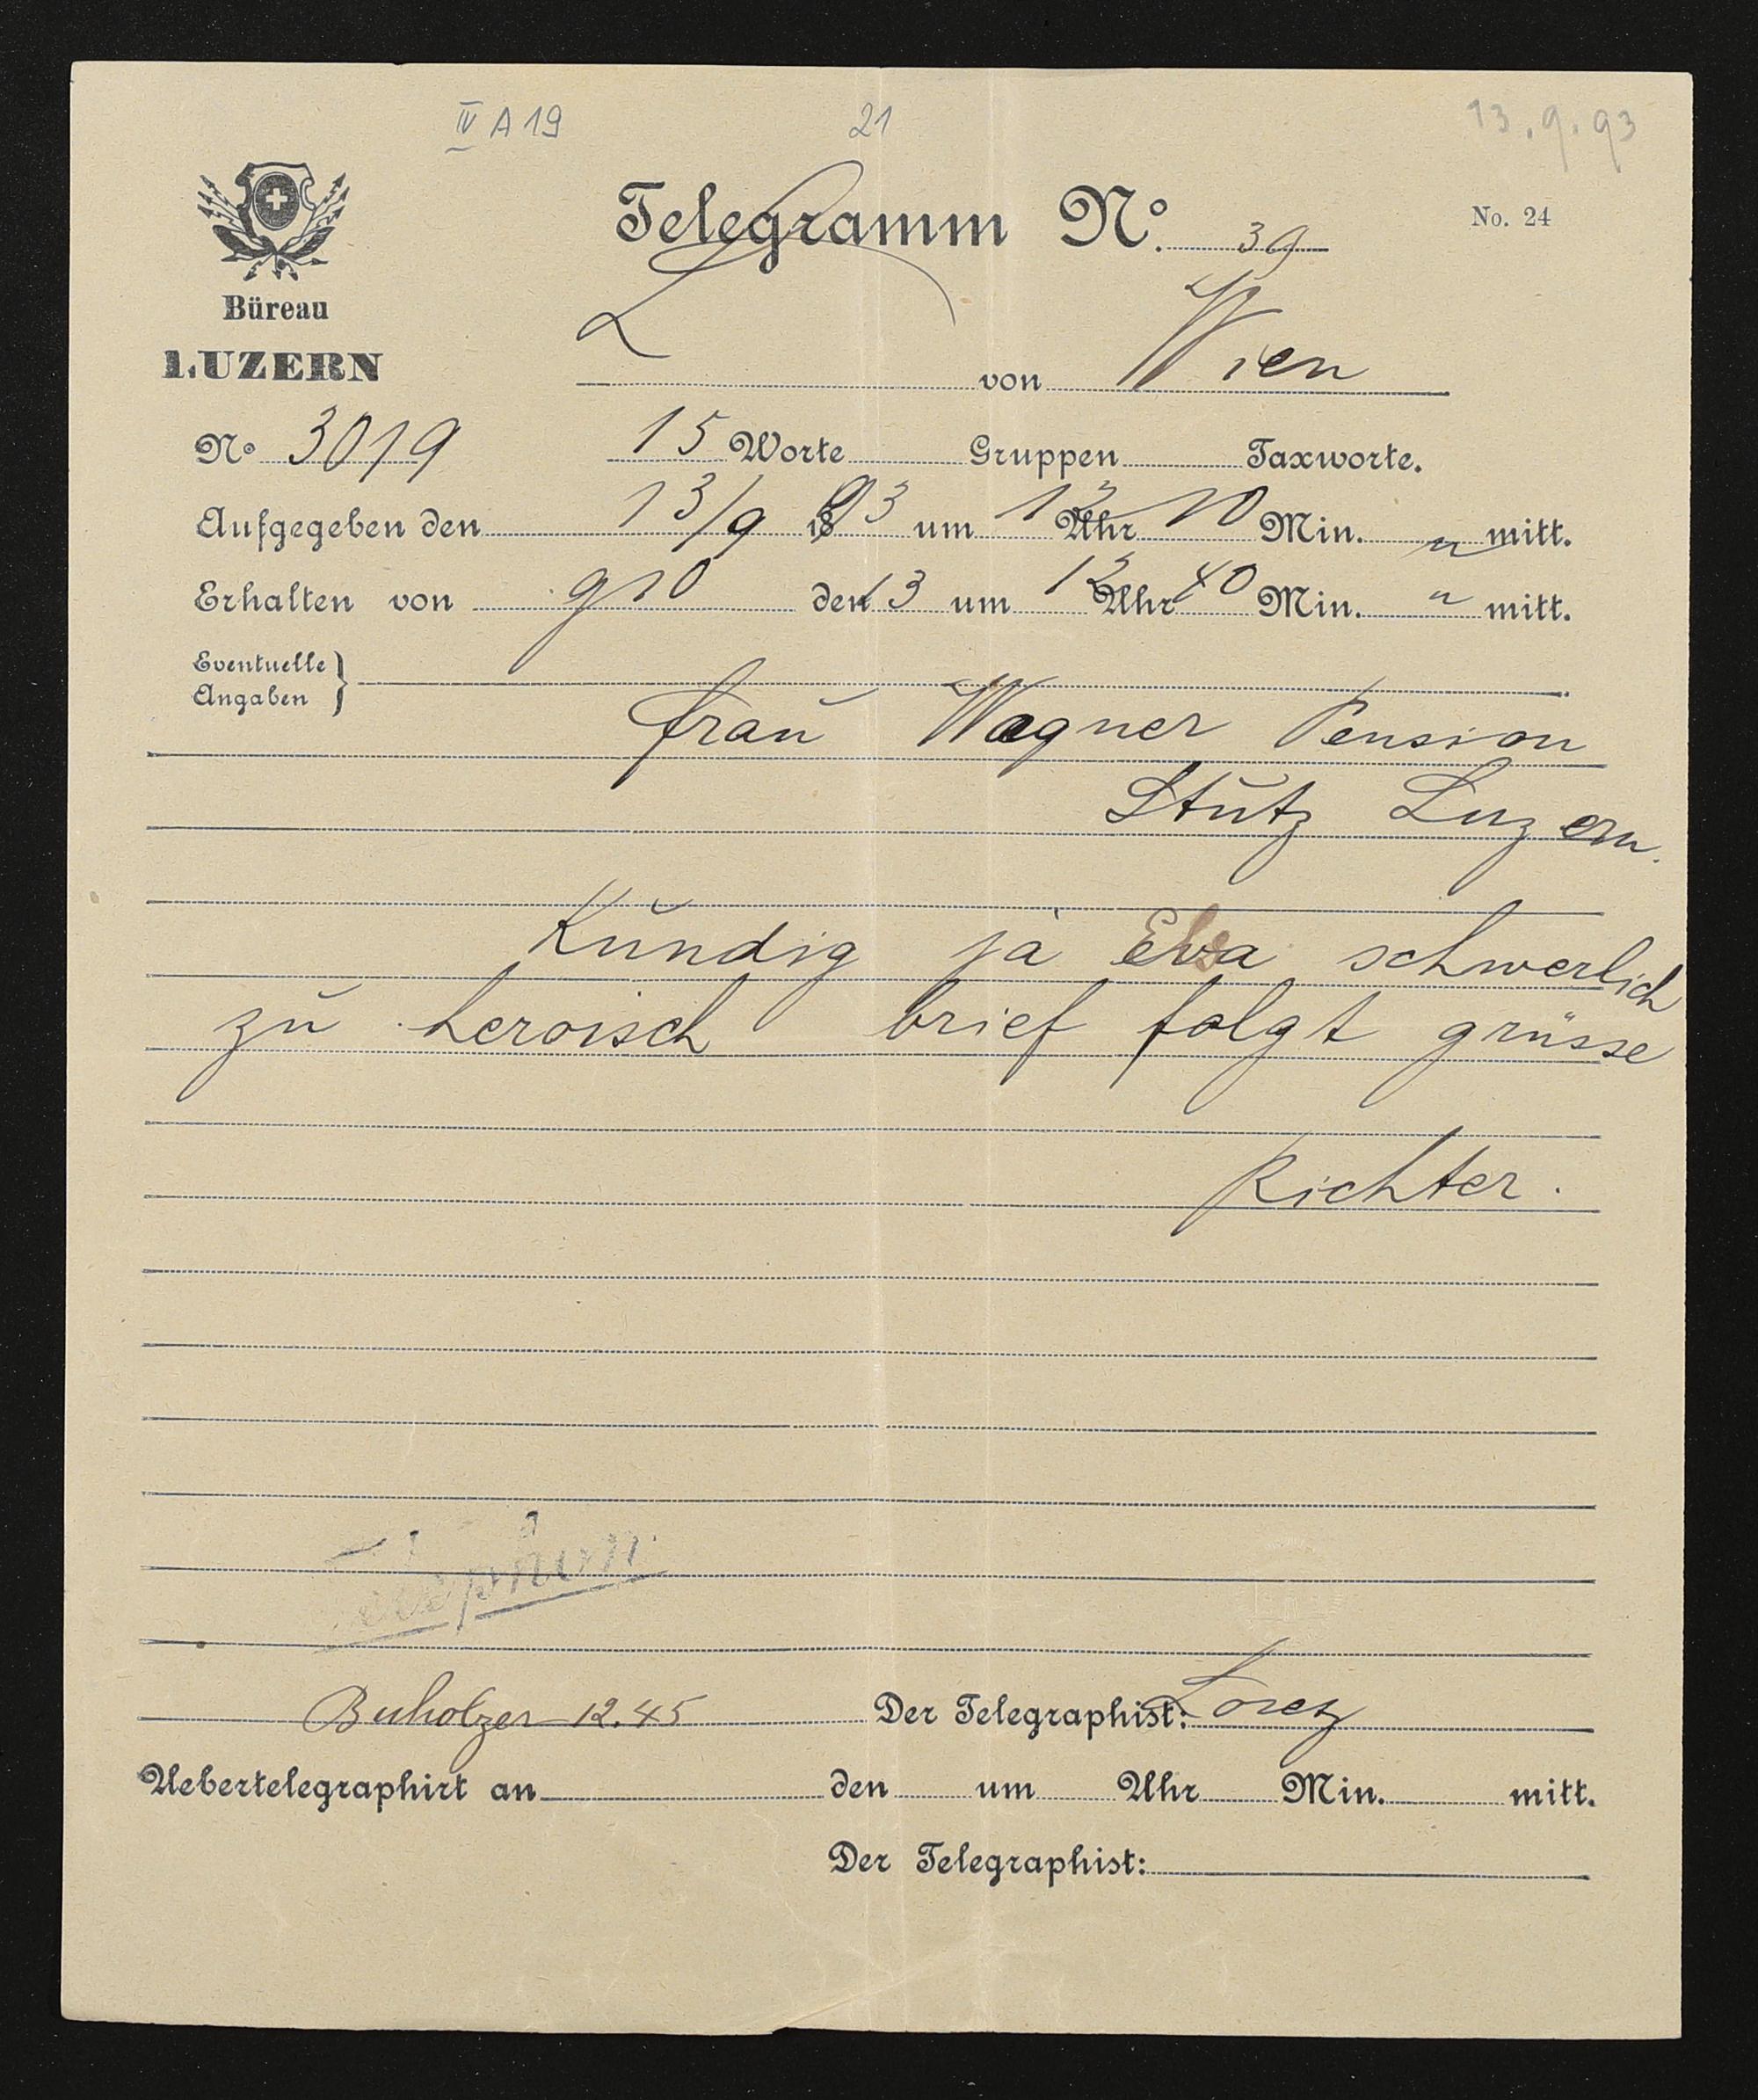 IV A 19 21 13.9.93
Telegramm No. 39 No. 24
Büreau
LUZERN
L von Wien
No 3019 15 Worte Gruppen Taxworte.
Aufgegeben den 13/9 1893 um 12 Uhr 10 Min. n mitt.
Erhalten von 910 den 13 um 12 Uhr 40 Min. " mitt.
Eventuelle
Angaben }
frau Wagner Pension
Stutz Luzern.
Kündig ja Elsa schwerlich
zu heroisch brief folgt grüsse
Richter.
Telephon.
Buholzer 12.45 Der Telegraphist: Lorez
Uebertelegraphirt an den um Uhr Min. mitt.
Der Telegraphist: